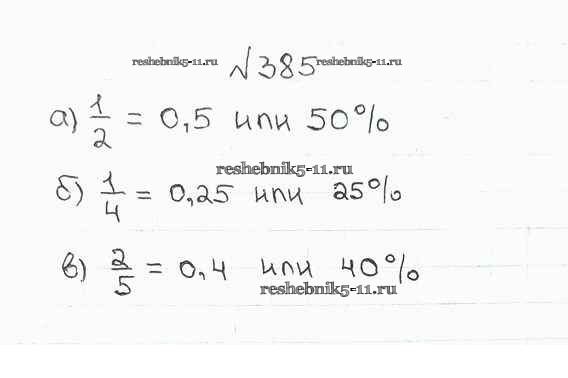 reshebnik5-11.ru №385 reshebnik5-11.ru
а) 1/2 = 0,5 или 50%
reshebnik5-11.ru
б) 1/4 = 0,25 или 25%
в) 2/5 = 0,4 или 40%
reshebnik5-11.ru